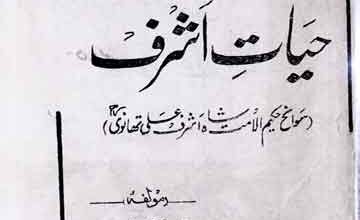 حیاتِ اَشرف
(سوانح حکیم الامت شاہ اشرف علی تھانویؒ)
مولفہ